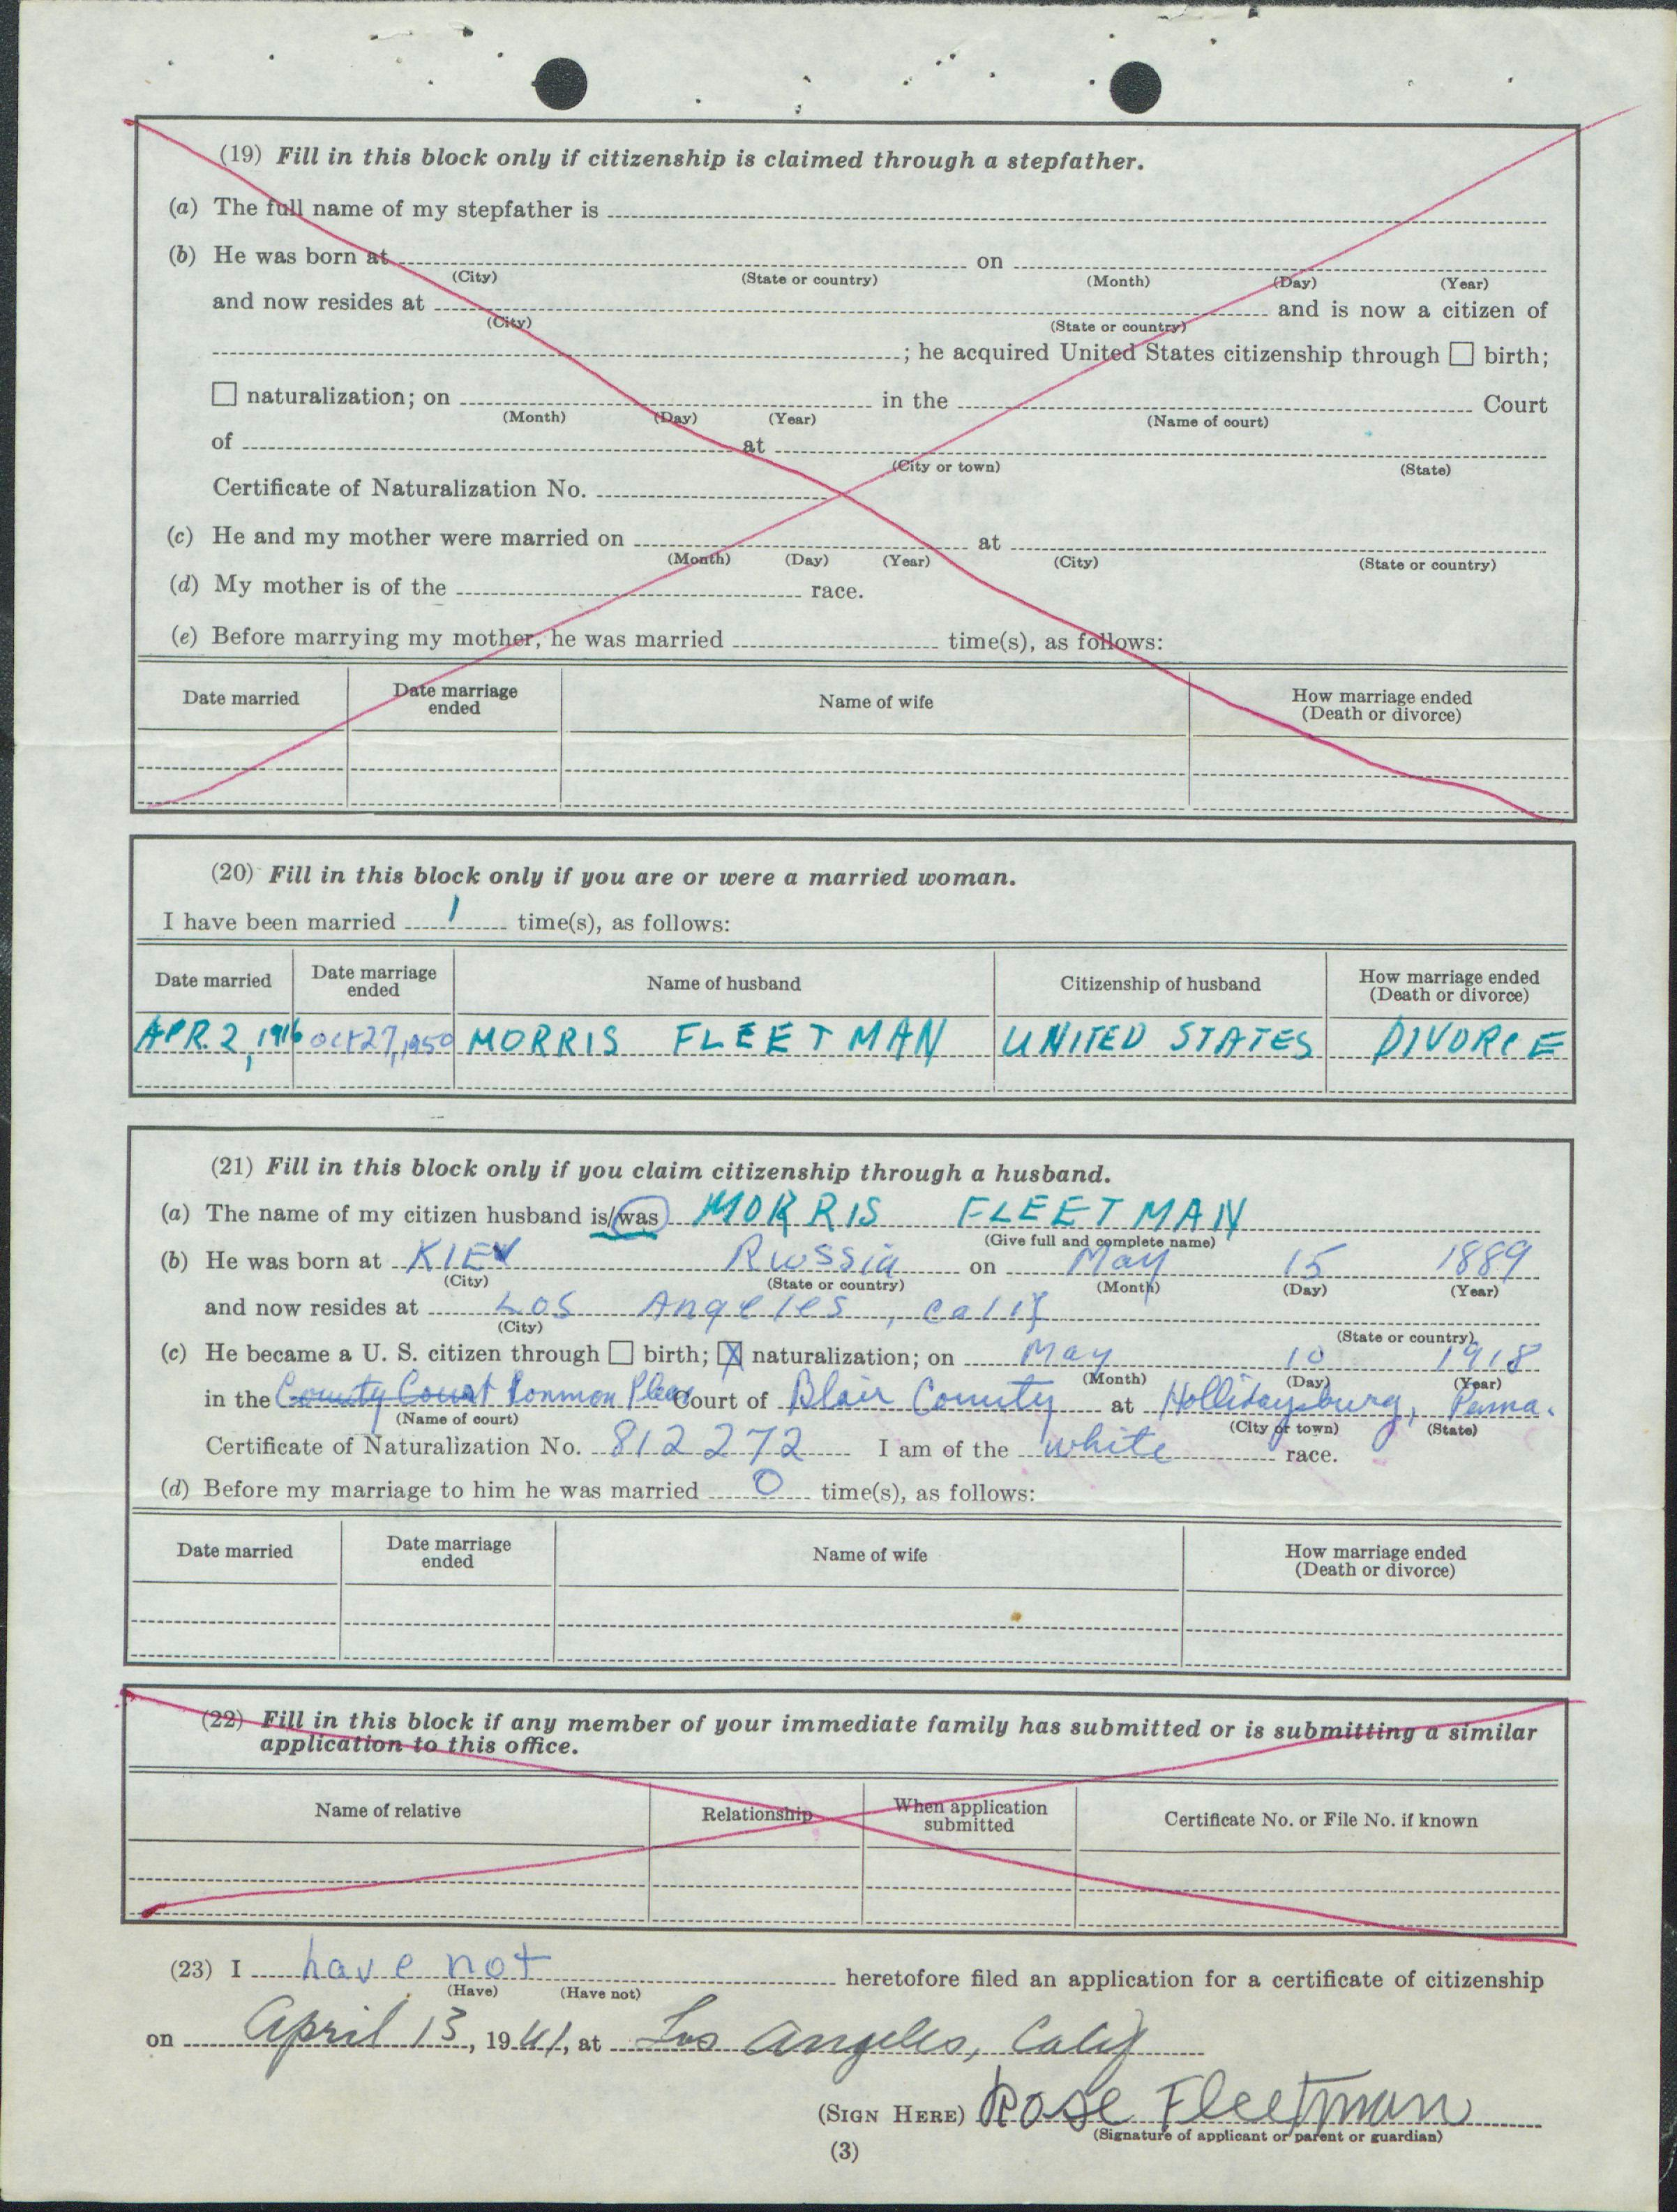 (19) Fill in this block only if citizenship is claimed through a stepfather.
(a) The full name of my stepfather is
(b) He was born at on
(City) (State or country) (Month) (Day) (Year)
and now resides at and is now a citizen of
(City) (State or country)
; he acquired United States citizenship through ☐ birth;
☐ naturalization; on in the Court
(Month) (Day) (Year) (Name of court)
of at
(City or town) (State)
Certificate of Naturalization No.
(c) He and my mother were married on at
(Month) (Day) (Year) (City) (State or country)
(d) My mother is of the race.
(e) Before marrying my mother, he was married time(s), as follows:
Date married Date marriage ended Name of wife How marriage ended (Death or divorce)
(20) Fill in this block only if you are or were a married woman.
I have been married 1 time(s), as follows:
Date married Date marriage ended Name of husband Citizenship of husband How marriage ended (Death or divorce)
APR. 2, 1916 Oct 27, 1950 MORRIS FLEETMAN UNITED STATES DIVORCE
(21) Fill in this block only if you claim citizenship through a husband.
(a) The name of my citizen husband is/was MORRIS FLEETMAN
(Give full and complete name)
(b) He was born at KIEV Russia on May 15 1889
(City) (State or country) (Month) (Day) (Year)
and now resides at Los Angeles, Calif
(City) (State or country)
(c) He became a U. S. citizen through ☐ birth; ☒ naturalization; on May 10 1918
(Month) (Day) (Year)
in the County Court Common Pleas Court of Blair County at Hollidaysburg, Penna.
(Name of court) (City or town) (State)
Certificate of Naturalization No. 812272 I am of the white race.
(d) Before my marriage to him he was married 0 time(s), as follows:
Date married Date marriage ended Name of wife How marriage ended (Death or divorce)
(22) Fill in this block if any member of your immediate family has submitted or is submitting a similar
application to this office.
Name of relative Relationship When application submitted Certificate No. or File No. if known
(23) I have not heretofore filed an application for a certificate of citizenship
(Have) (Have not)
on April 13, 19 at Los Angeles, Calif
(SIGN HERE) Rose Fleetman
(Signature of applicant or parent or guardian)
(3)